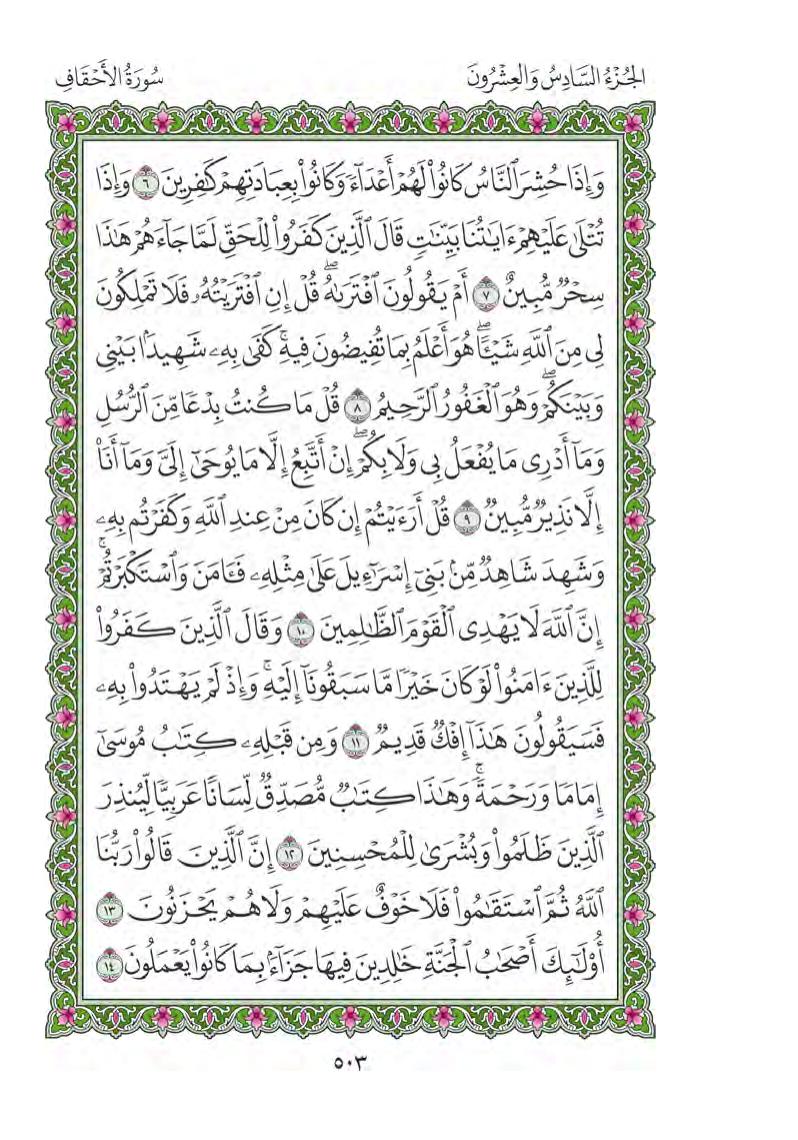 الجُزْءُ السَّادِسُ وَالعِشْرُونَ سُورَةُ الأَحْقَافِ
وَإِذَا حُشِرَ ٱلنَّاسُ كَانُوا۟ لَهُمْ أَعْدَآءً وَكَانُوا۟ بِعِبَادَتِهِمْ كَٰفِرِينَ ٦ وَإِذَا
تُتْلَىٰ عَلَيْهِمْ ءَايَٰتُنَا بَيِّنَٰتٍ قَالَ ٱلَّذِينَ كَفَرُوا۟ لِلْحَقِّ لَمَّا جَآءَهُمْ هَٰذَا
سِحْرٌ مُّبِينٌ ٧ أَمْ يَقُولُونَ ٱفْتَرَىٰهُ ۖ قُلْ إِنِ ٱفْتَرَيْتُهُۥ فَلَا تَمْلِكُونَ
لِى مِنَ ٱللَّهِ شَيْـًٔا ۖ هُوَ أَعْلَمُ بِمَا تُفِيضُونَ فِيهِ ۚ كَفَىٰ بِهِۦ شَهِيدًۢا بَيْنِى
وَبَيْنَكُمْ ۖ وَهُوَ ٱلْغَفُورُ ٱلرَّحِيمُ ٨ قُلْ مَا كُنتُ بِدْعًا مِّنَ ٱلرُّسُلِ
وَمَآ أَدْرِى مَا يُفْعَلُ بِى وَلَا بِكُمْ ۖ إِنْ أَتَّبِعُ إِلَّا مَا يُوحَىٰٓ إِلَىَّ وَمَآ أَنَا۠
إِلَّا نَذِيرٌ مُّبِينٌ ٩ قُلْ أَرَءَيْتُمْ إِن كَانَ مِنْ عِندِ ٱللَّهِ وَكَفَرْتُم بِهِۦ
وَشَهِدَ شَاهِدٌ مِّنۢ بَنِىٓ إِسْرَٰٓءِيلَ عَلَىٰ مِثْلِهِۦ فَـَٔامَنَ وَٱسْتَكْبَرْتُمْ ۚ
إِنَّ ٱللَّهَ لَا يَهْدِى ٱلْقَوْمَ ٱلظَّٰلِمِينَ ١٠ وَقَالَ ٱلَّذِينَ كَفَرُوا۟
لِلَّذِينَ ءَامَنُوا۟ لَوْ كَانَ خَيْرًا مَّا سَبَقُونَآ إِلَيْهِ ۚ وَإِذْ لَمْ يَهْتَدُوا۟ بِهِۦ
فَسَيَقُولُونَ هَٰذَآ إِفْكٌ قَدِيمٌ ١١ وَمِن قَبْلِهِۦ كِتَٰبُ مُوسَىٰٓ
إِمَامًا وَرَحْمَةً ۚ وَهَٰذَا كِتَٰبٌ مُّصَدِّقٌ لِّسَانًا عَرَبِيًّا لِّيُنذِرَ
ٱلَّذِينَ ظَلَمُوا۟ وَبُشْرَىٰ لِلْمُحْسِنِينَ ١٢ إِنَّ ٱلَّذِينَ قَالُوا۟ رَبُّنَا
ٱللَّهُ ثُمَّ ٱسْتَقَٰمُوا۟ فَلَا خَوْفٌ عَلَيْهِمْ وَلَا هُمْ يَحْزَنُونَ ١٣
أُو۟لَٰٓئِكَ أَصْحَٰبُ ٱلْجَنَّةِ خَٰلِدِينَ فِيهَا جَزَآءًۢ بِمَا كَانُوا۟ يَعْمَلُونَ ١٤
٥٠٣